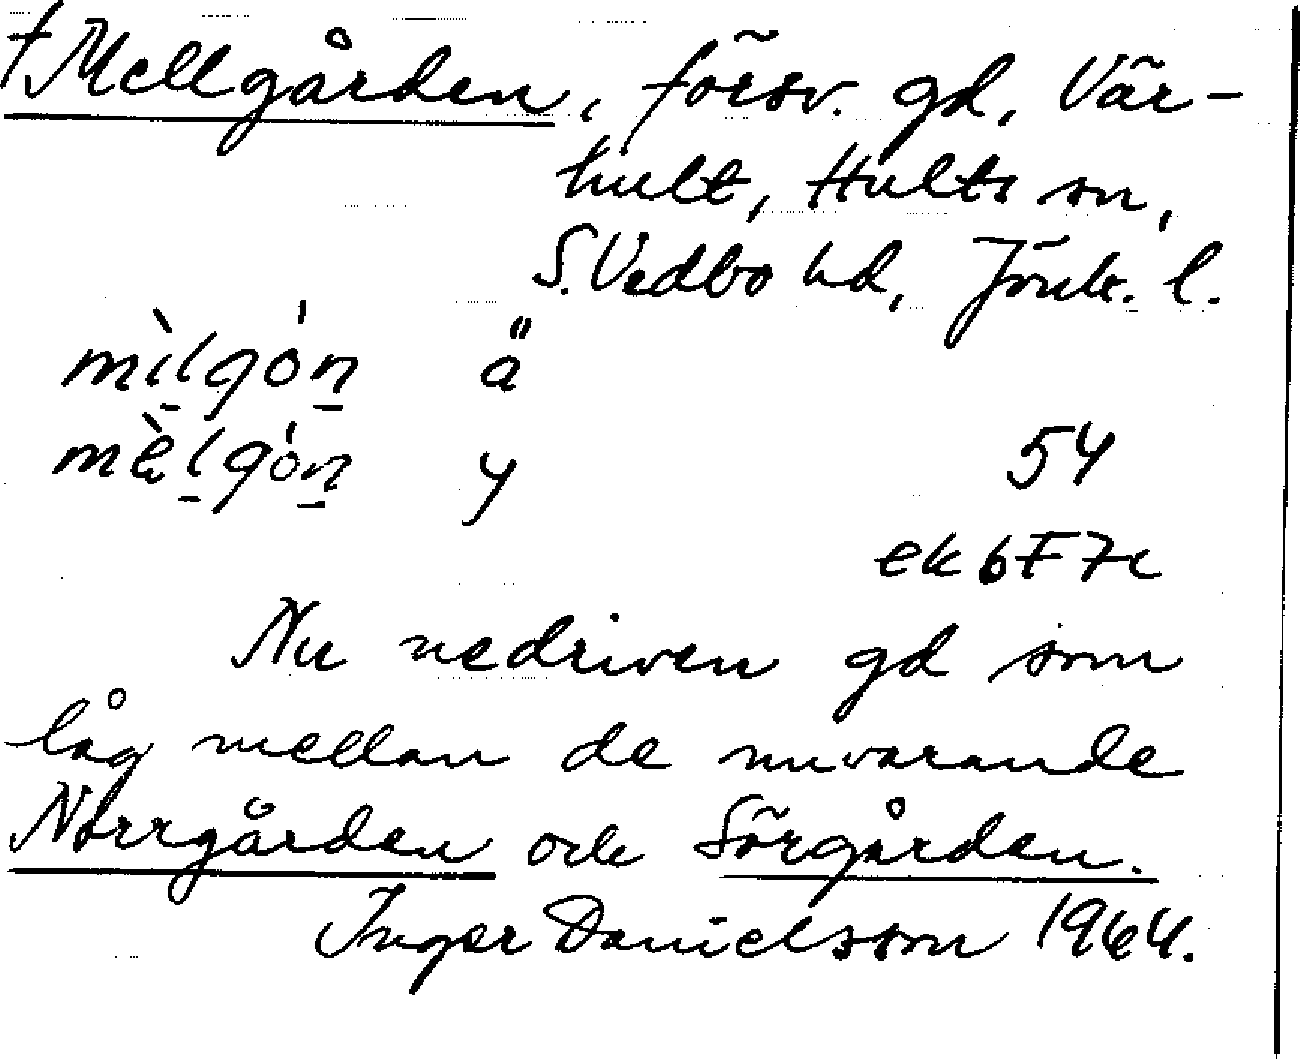 †Mellgården, försv. gd, Vär-
hult, Hults sn,
S. Vedbo hd, Jönk. l.
mìlgón ä
mèlgón y 54
ek 6F7c
Nu nedriven gd som
låg mellan de nuvarande
Norrgården och Sörgården.
Inger Danielsson 1964.